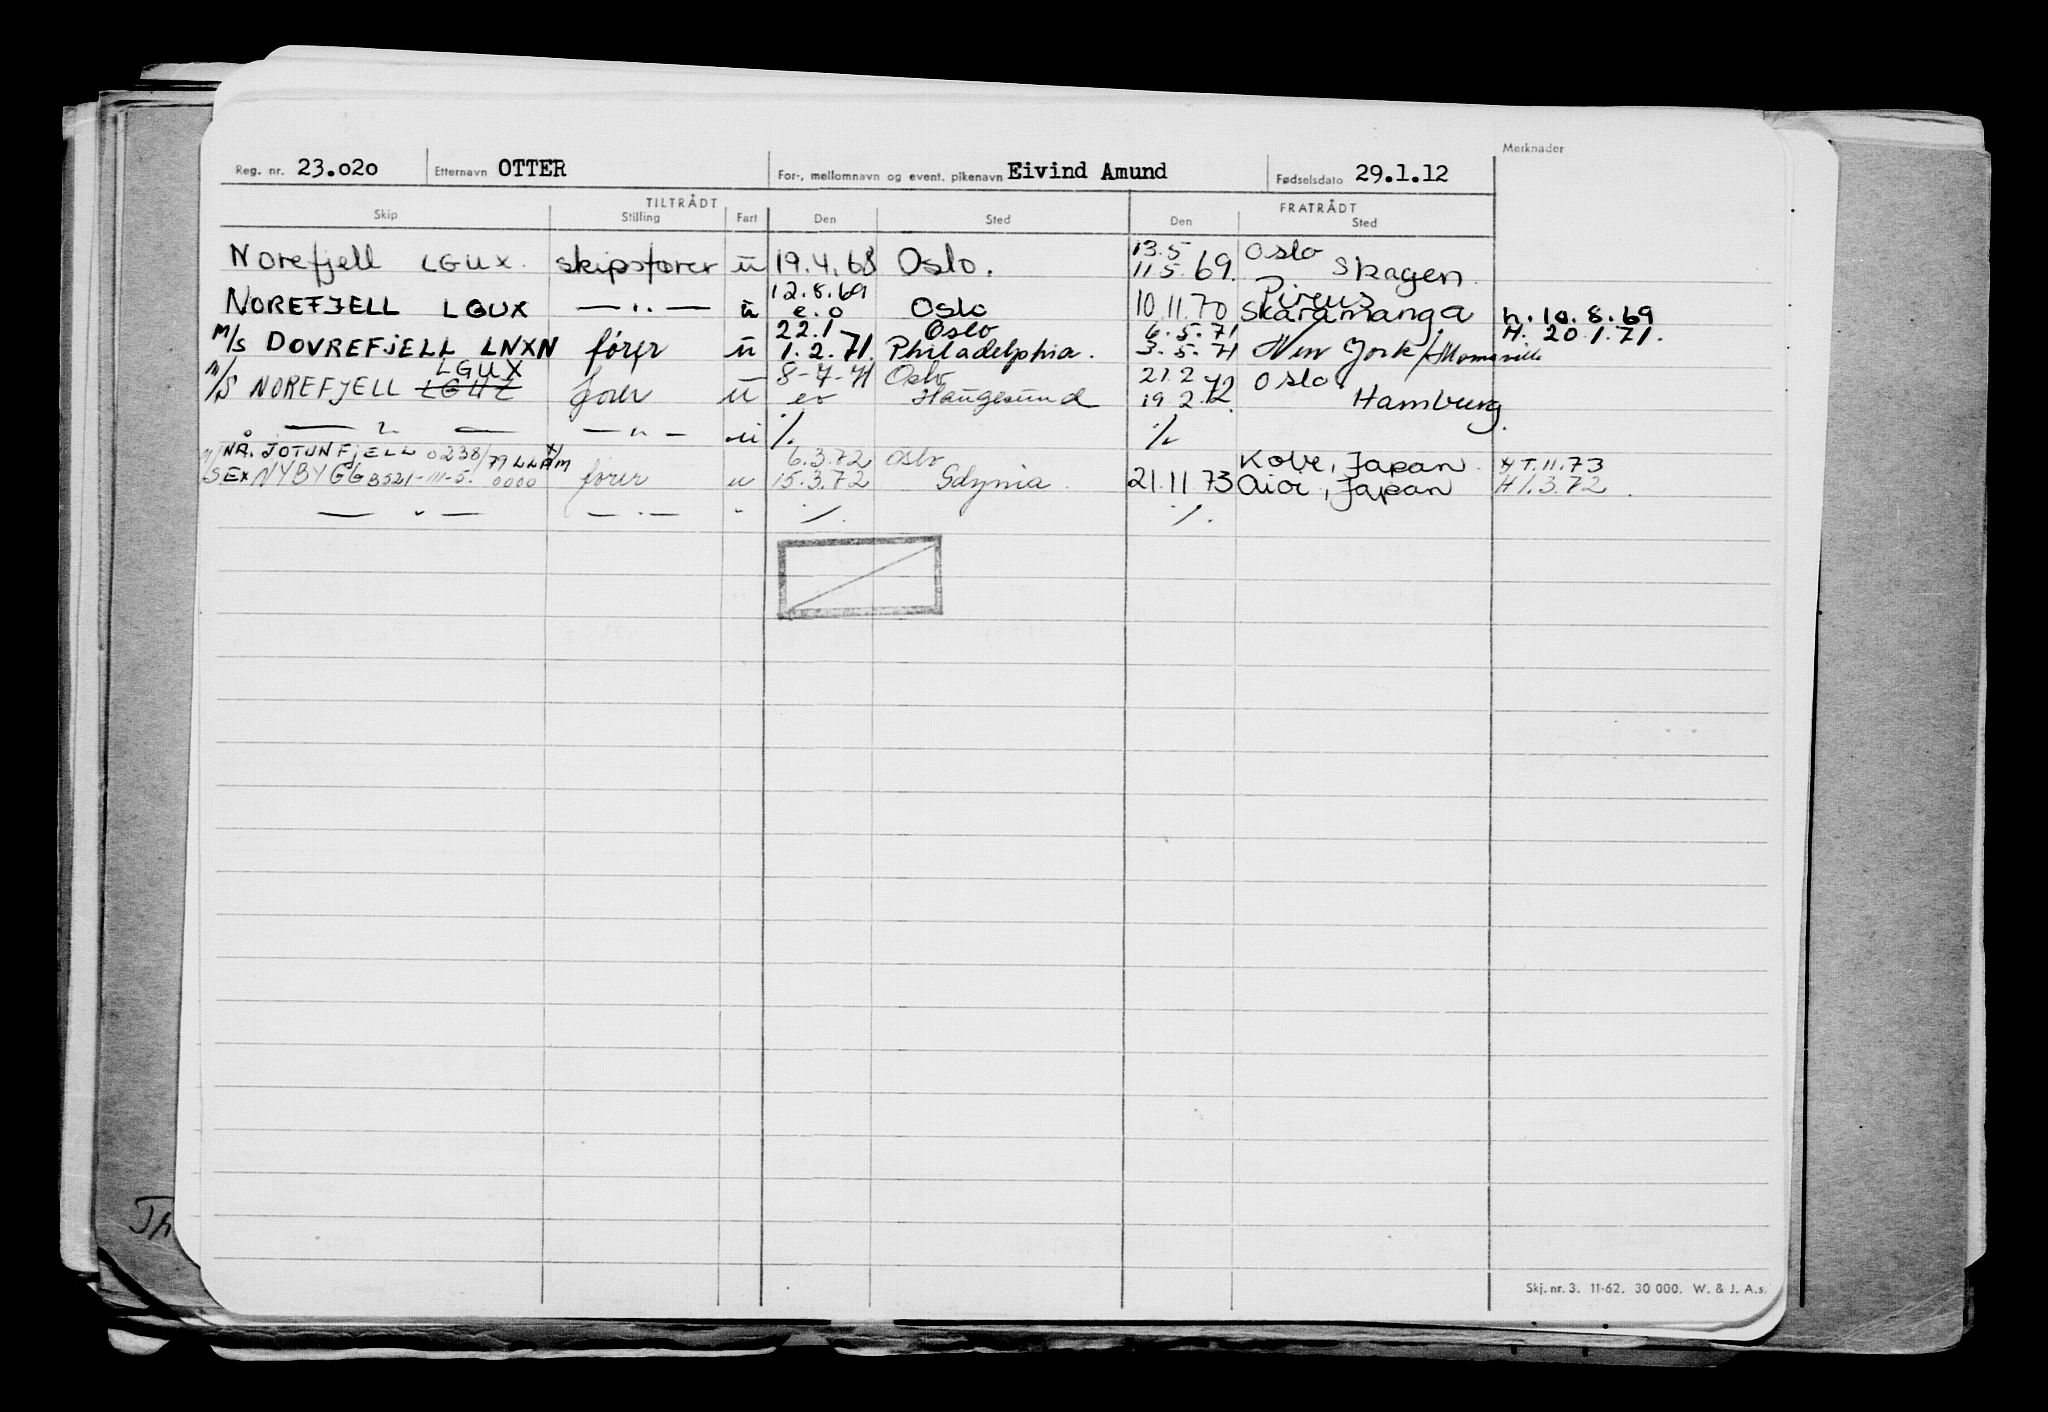 Merknader
Reg. nr. 23.020 Etternavn OTTER For-, mellomnavn og event. pikenavn Eivind Amund Fødselsdato 29.1.12
TILTRÅDT FRATRÅDT
Skip Stilling Fart Den Sted Den Sted
13.5 Oslo
Norefjell LGUX. skipsfører ū 19.4.68 Oslo. 11.5.69. Skagen
12.8.69 Pireus
NOREFJELL LGUX — " — ū e.o Oslo 10.11.70 Skaramanga h. 10.8.69
22.1 Oslo 6.5.71 H. 20.1.71.
M/S DOVREFJELL LNXN fører ū 1.2.71. Philadelphia. 3.5.71 New York
LGUX 8-7-71 Oslo 21.2 Oslo
M/S NOREFJELL LGUZ fører ū eo Haugesund 19.2.72. Hamburg.
— " — — " — ū ./. ./.
NÅ. JOTUNFJELL 0238/79 LLAM 6.3.72 Oslo Kobe, Japan H 7.11.73
M/S EX NYBYGG B521-III-5. 0000 fører u 15.3.72 Gdynia. 21.11 73 Aioi, Japan H 1.3.72.
— " — — " — " ./. ./.
Th
Skj. nr. 3. 11-62. 30 000. W. & J. A.s.